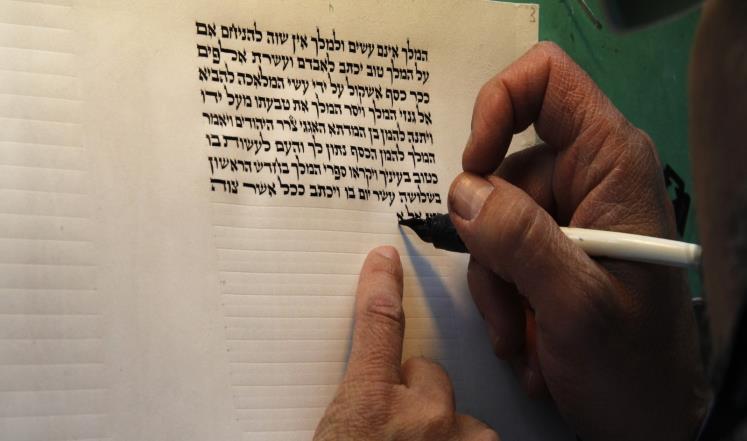 המלך אינם עשים ולמלך אין שוה להניחם אם
על המלך טוב יכתב לאבדם ועשרת אלפים
ככר כסף אשקול על ידי עשי המלאכה להביא
אל גנזי המלך ויסר המלך את טבעתו מעל ידו
ויתנה להמן בן המדתא האגגי צרר היהודים ויאמר
המלך להמן הכסף נתון לך והעם לעשות בו
כטוב בעיניך ויקראו ספרי המלך בחדש הראשון
בשלושה עשר יום בו ויכתב ככל אשר צוה
אל א